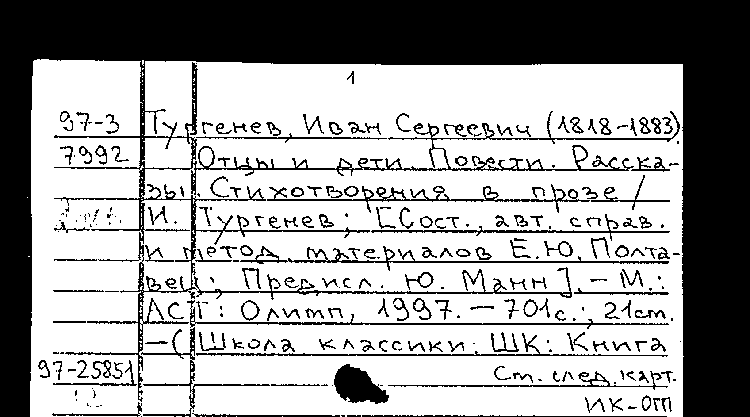 1
97-3 Тургенев, Иван Сергеевич (1818-1883).
7992 Отцы и дети. Повести. Расска-
зы. Стихотворения в прозе /
И. Тургенев; [Сост., авт. справ.
и метод. материалов Е.Ю. Полта-
вец; Предисл. Ю. Манн]. - М.:
АСТ: Олимп, 1997. - 701с.; 21см.
-(Школа классики: ШК: Книга
97-25851 См. след. карт.